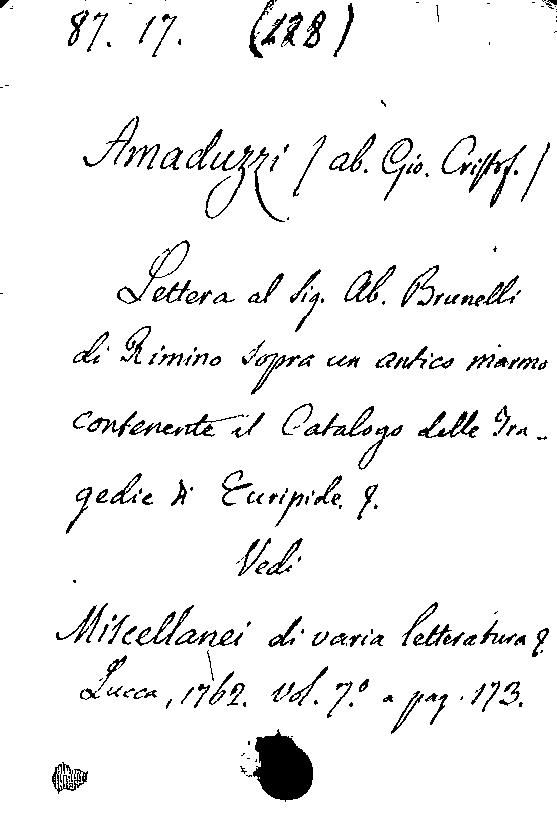 87. 17. (228)
Amaduzzi / ab. Gio. Cristof. /
Lettera al Sig. Ab. Brunelli
di Rimino sopra un antico marmo
contenente il Catalogo delle Tra-
gedie di Euripide &.
Vedi
Miscellanei di varia letteratura &
Lucca, 1762. Vol. 7.º a pag. 173.